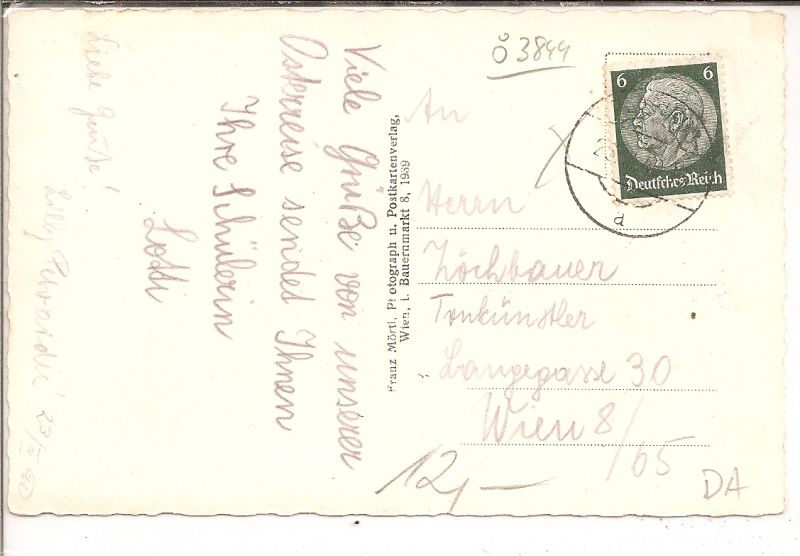 Viele Grüße von unserer
Osterreise sendet Ihnen
Ihre Schülerin
Lotti
Liebe Grüße!
Franz Mörtl, Photograph u. Postkartenverlag,
Wien, I. Bauernmarkt 8, 1939
Ö 3844
6 6
Deutsches Reich
a
An
Herrn
Zöchbauer
Tonkünstler
Langegasse 30
Wien 8/
65
12,—
DA